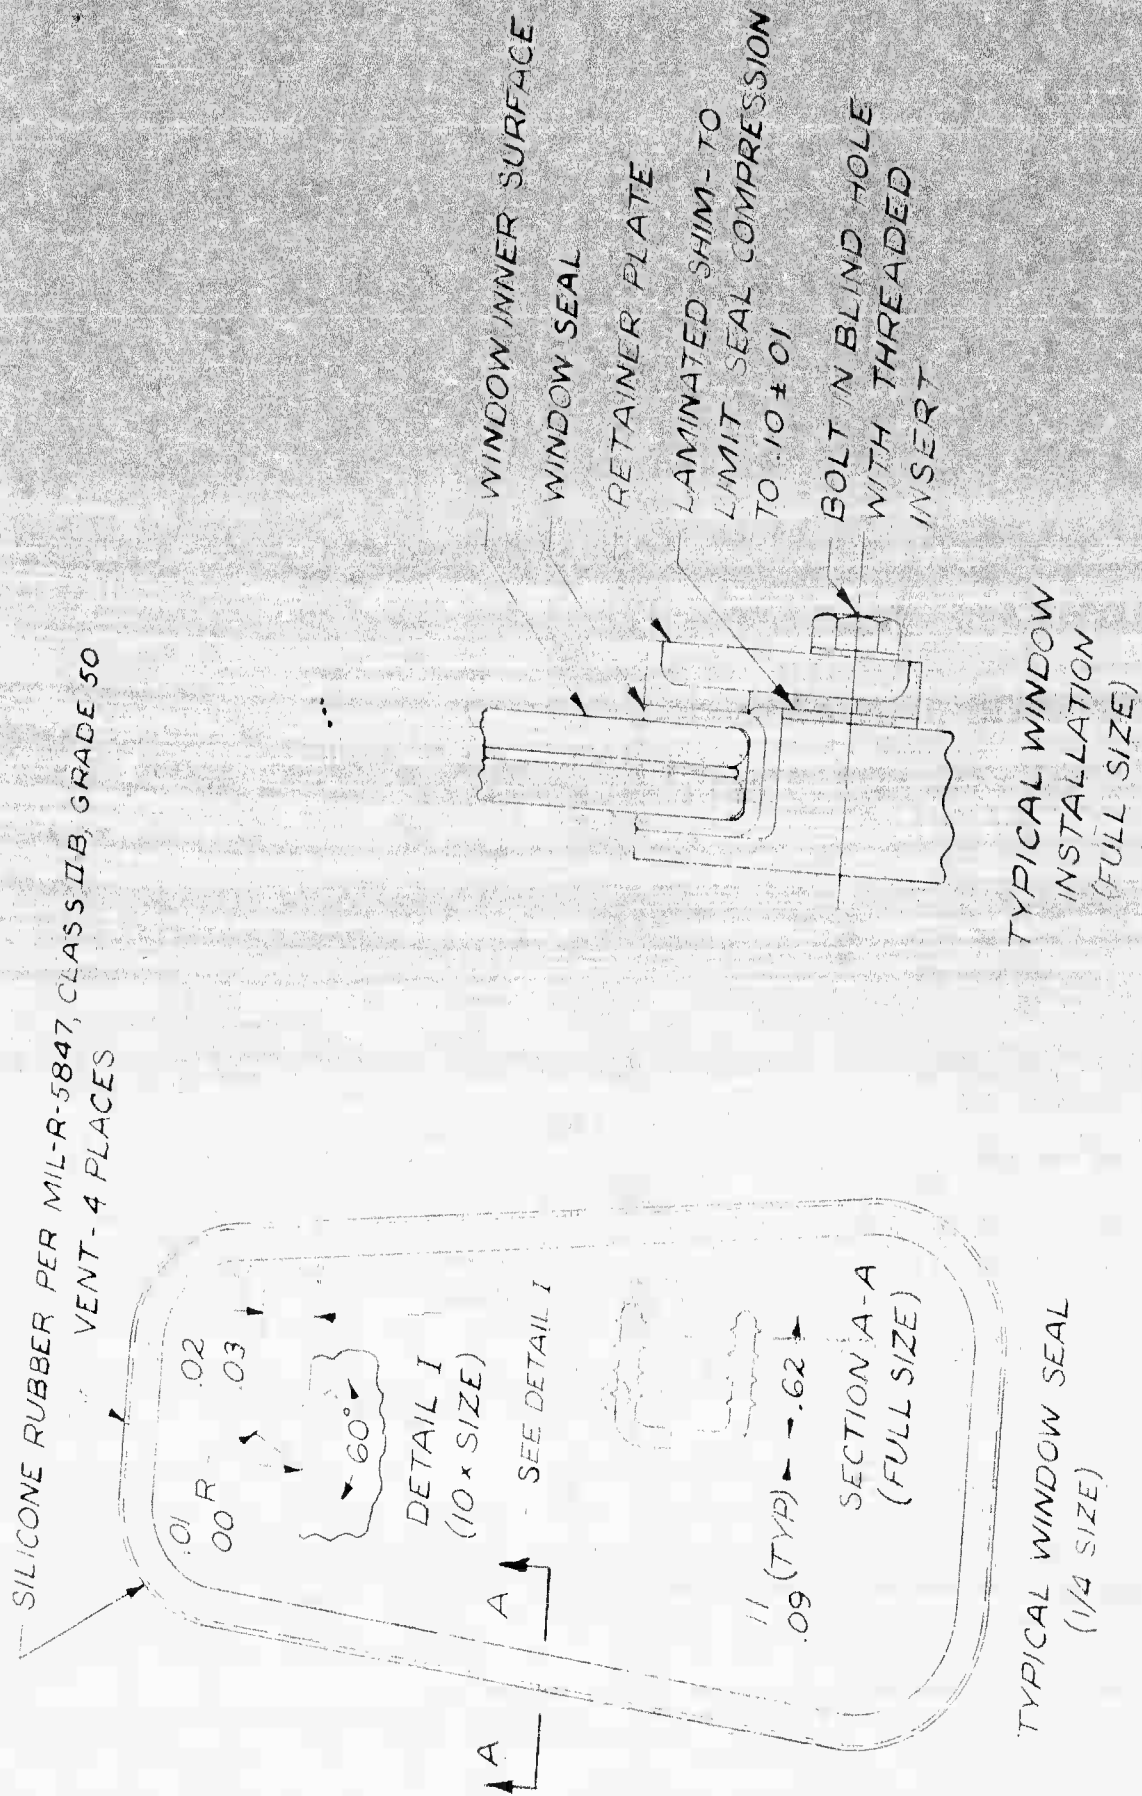 SILICONE RUBBER PER MIL-R-5847, CLASS II B, GRADE 50
VENT - 4 PLACES
.01
.00 R
.02
.03
60°
DETAIL I
(10 x SIZE)
SEE DETAIL I
A
A
.11
.09 (TYP)
.62
SECTION A-A
(FULL SIZE)
TYPICAL WINDOW SEAL
(1/4 SIZE)
WINDOW INNER SURFACE
WINDOW SEAL
RETAINER PLATE
LAMINATED SHIM - TO
LIMIT SEAL COMPRESSION
TO .10 ± 01
BOLT IN BLIND HOLE
WITH THREADED
INSERT
TYPICAL WINDOW
INSTALLATION
(FULL SIZE)